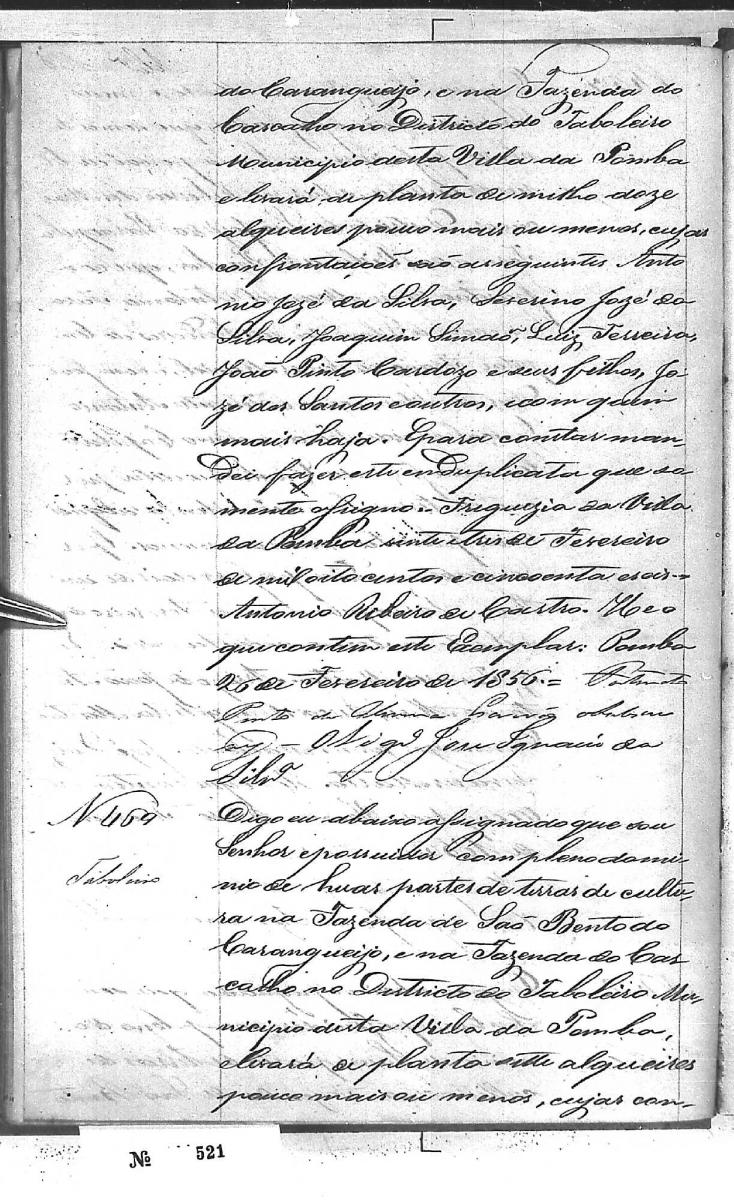 do Carangueijo, e na Fazenda do
Cascalho no Districto do Taboleiro
Municipio desta Villa da Pomba
e levará de planta de milho doze
alqueires pouco mais ou menos, cujas
confrontaçoẽs são as seguintes Anto
nio Jozé da Silva, Severino Jozé da
Silva, Joaquim Simaõ, Luiz Ferreira,
Joaõ Pinto Cardozo e seus filhos, Jo
zé dos Santos e outros, e com quem
mais haja. E para constar man-
dei fazer este em duplicata que so
mente assigno. Freguezia da Villa
da Pomba vinte e tres de Fevereiro
de mil oito centos e cincoenta e seis =
Antonio Ribeiro de Castro. He o
que contem este Exemplar: Pomba
26 de Fevereiro de 1856 =
Pinto de
O Vigrº Jose Ignacio da
Silvª
Nº 469
Taboleiro
Digo eu abaixo assignado que sou
Senhor e possuidor com pleno domi
nio de huas partes de terras de cultu-
ra na Fazenda de Saõ Bento do
Carangueijo, e na Fazenda do Cas
calho no Districto do Taboleiro Mu-
nicipio desta Villa da Pomba,
levará de planta sette alqueires
pouco mais ou menos, cujas con-
Nº 521